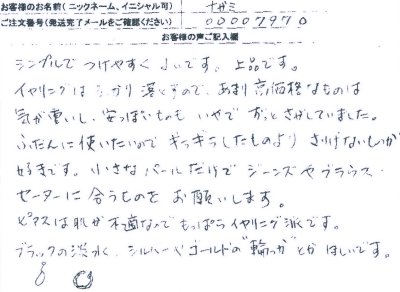 お客様のお名前(ニックネーム、イニシャル可) ナガミ
ご注文番号(発送完了メールをご確認ください) 00007970
お客様の声ご記入欄
シンプルで つけやすく よいです。上品です。
イヤリングは しっかり 落とすので、あまり 高価格なものは
気が重いし、安っぽいものも いやで ずっと さがしていました。
ふだんに 使いたいので ギラギラしたものより さりげないもの
好きです。小さな パールだけで ジーンズや ブラウス・
セーターに 合うものを お願いします。
ピアスは 肌が 不適なので もっぱら イヤリング 派です。
ブラックの 淡水、シルバーや ゴールドの "輪っか" とか ほしいです。